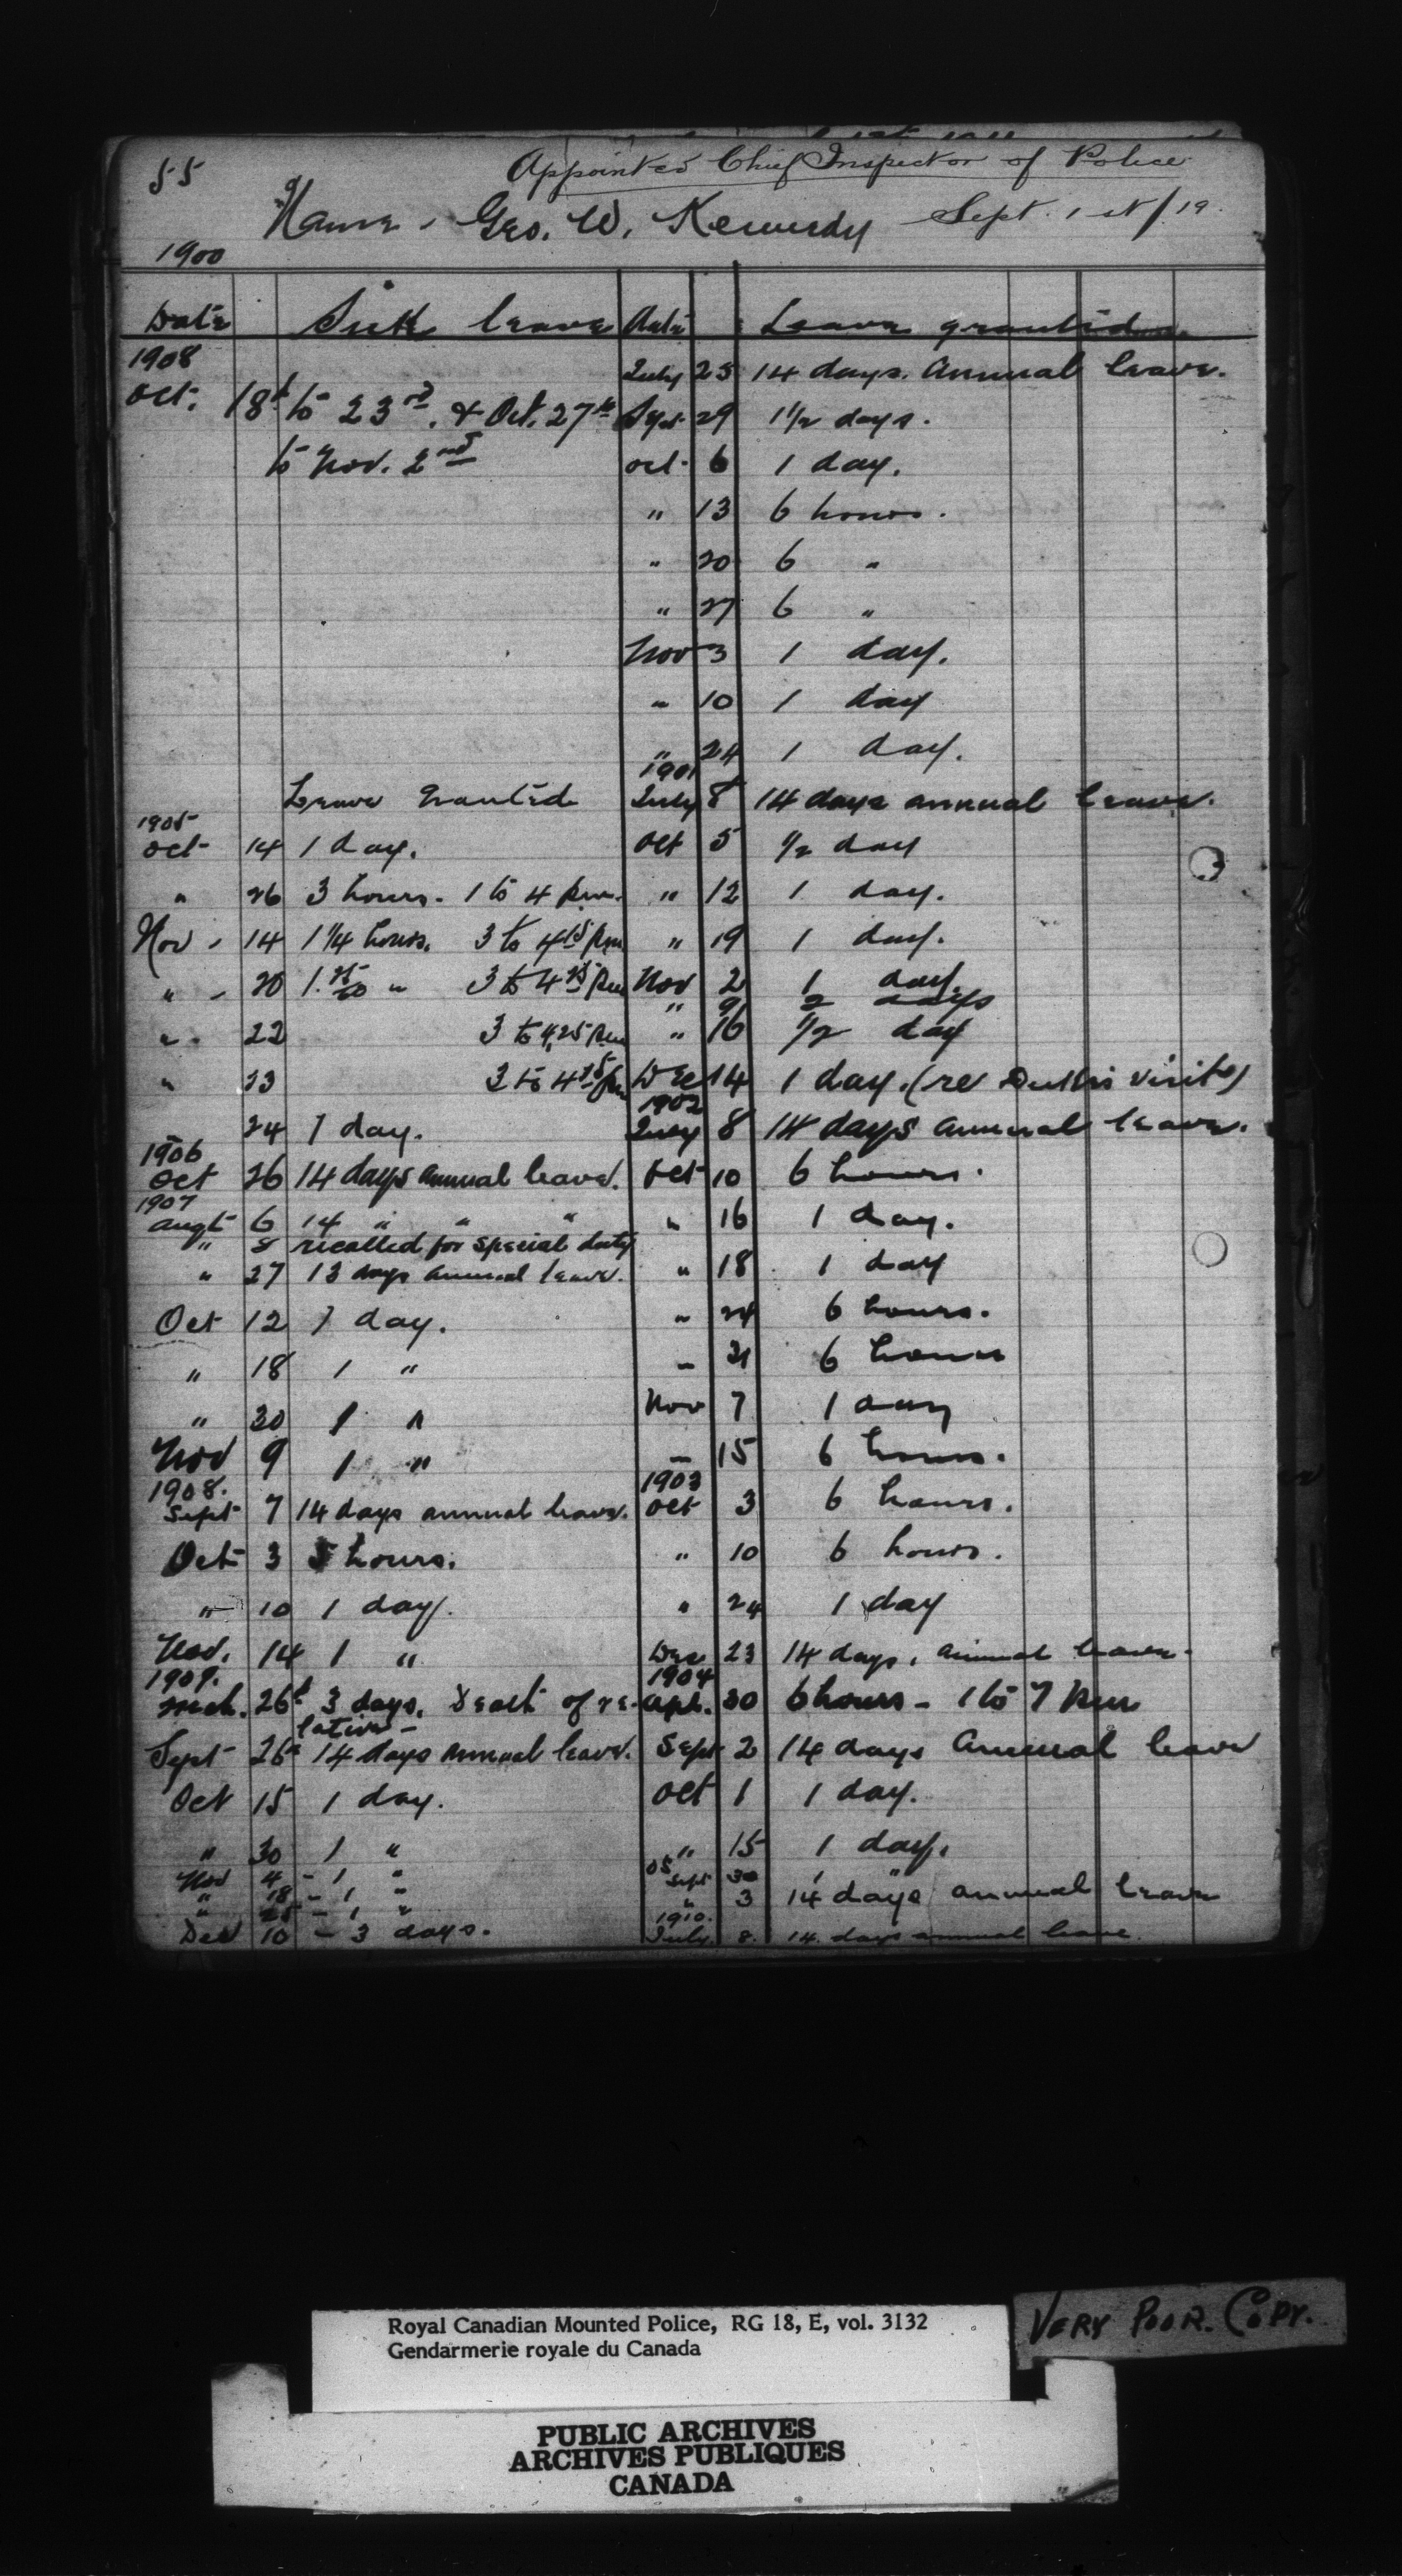 55
Appointed Chief Inspector of Police
Name, Geo. W. Kennedy Sept. 1st/19.
1900
Date Sick leave Date Leave granted
1908
July 25 14 days. Annual leave.
Oct. 18th to 23rd. & Oct. 27th Sept 29 1½ days.
to Nov. 2nd Oct. 6 1 day.
" 13 6 hours.
" 20 6 "
" 27 6 "
Nov 3 1 day.
" 10 1 day
" 24 1 day.
1901
Leave Granted July 8 14 days annual leave.
1905
Oct 14 1 day. Oct 5 ½ day
" 26 3 hours. 1 to 4 p.m. " 12 1 day.
Nov. 14 1¼ hours. 3 to 4.15 p.m. " 19 1 day.
" 20 1.25/60 " 3 to 4.25 p.m. Nov 2 1 day.
" 9 2 days
" 22 3 to 4.25 p.m. " 16 ½ day
" 23 3 to 4.25 p.m. Dec 14 1 day. (re visit)
1902
24 1 day. July 8 14 days annual leave.
1906
Oct 26 14 days annual leave. Oct 10 6 hours.
1907
Augt 6 14 " " " " 16 1 day.
" 8 recalled for special duty
" 27 13 days annual leave. " 18 1 day
Oct 12 1 day. " 24 6 hours.
" 18 1 " " 31 6 hours
" 30 1 " Nov 7 1 day
Nov 9 1 " " 15 6 hours.
1908. 1903
Sept 7 14 days annual leave. Oct 3 6 hours.
Oct 3 5 hours. " 10 6 hours.
" 10 1 day. " 24 1 day
Nov. 14 1 " Dec 23 14 days, annual leave.
1909. 1904
Mch. 26th 3 days. Death of re- Apl. 30 6 hours - 1 to 7 p.m.
lative -
Sept 26th 14 days annual leave. Sept 2 14 days Annual leave
Oct 15 1 day. Oct 1 1 day.
" 30 1 " " 15 1 day.
Nov 4 - 1 " 05 Sept 30 1 "
" 18 - 1 " " 3 14 days annual leave
" 25 - 1 " 1910.
Dec 10 - 3 days. July 8. 14. days annual leave.
Royal Canadian Mounted Police, RG 18, E, vol. 3132
Gendarmerie royale du Canada
VERY POOR. COPY.
PUBLIC ARCHIVES
ARCHIVES PUBLIQUES
CANADA